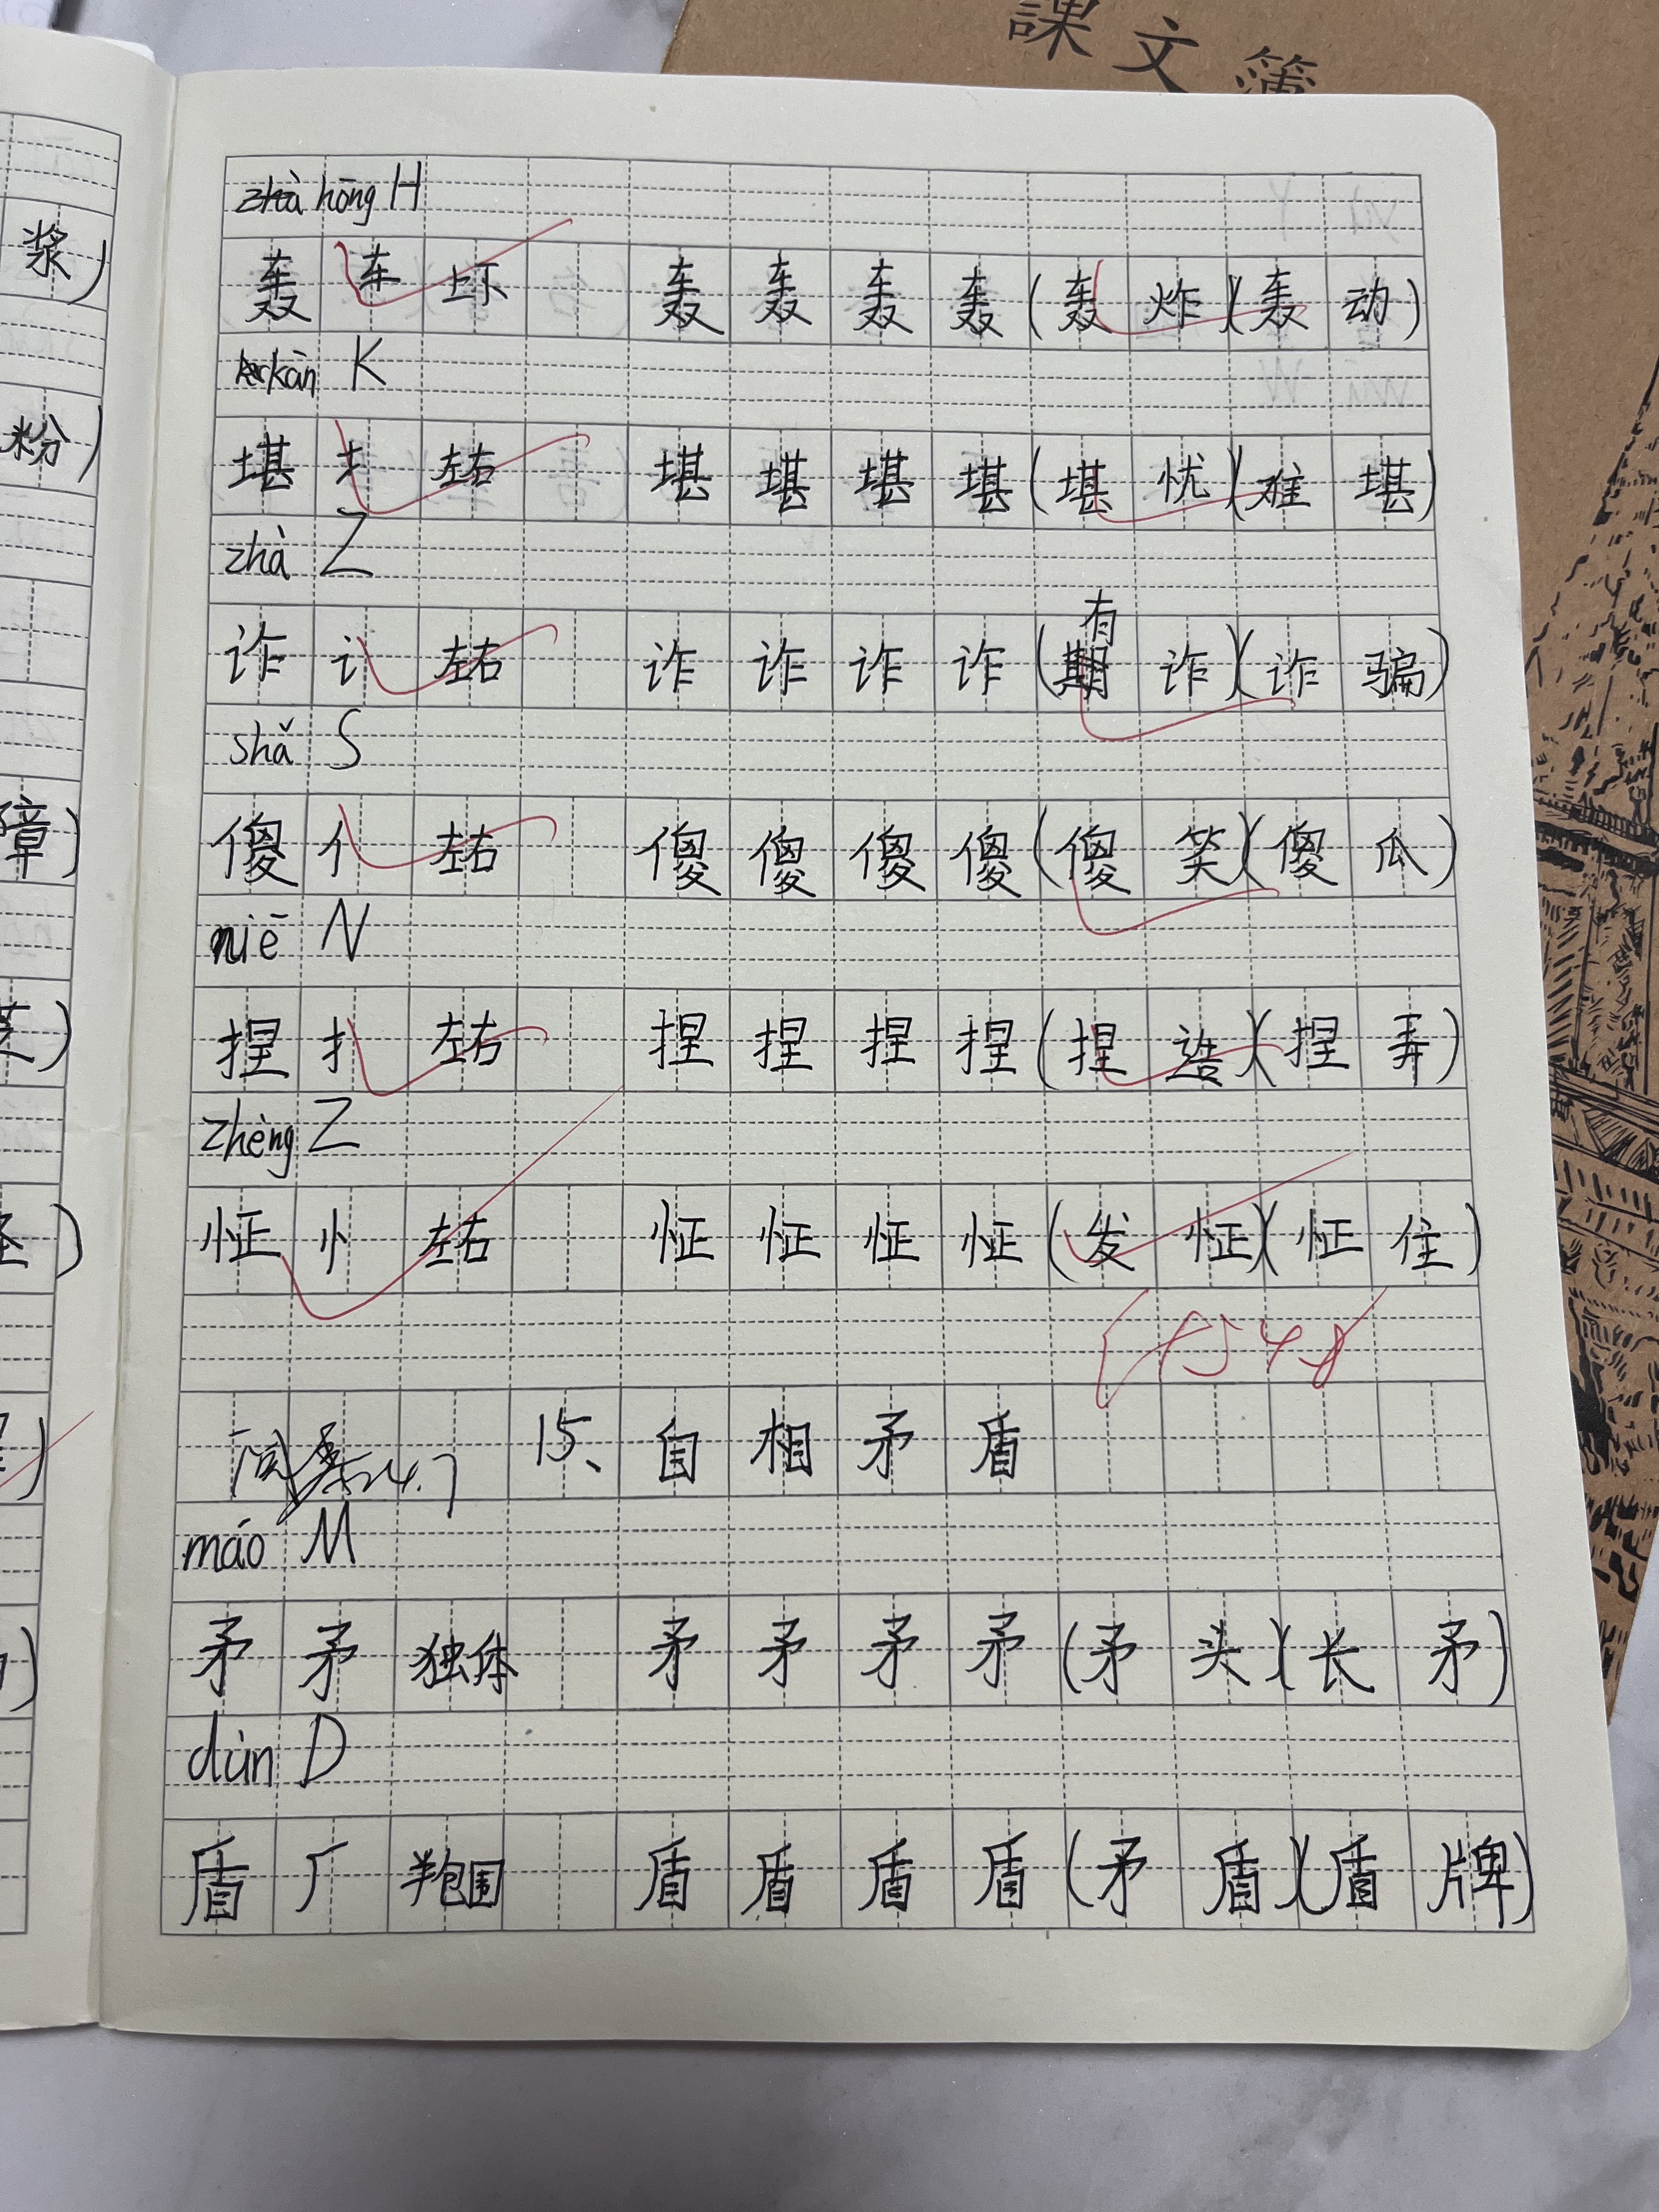 課文簿
hōng H
轰 车 上下 轰 轰 轰 轰 (轰炸)(轰动)
kān K
堪 扌 左右 堪 堪 堪 堪 (堪忧)(难堪)
zhà Z
诈 讠 左右 诈 诈 诈 诈 (有诈)(诈骗)
shǎ S
傻 亻 左右 傻 傻 傻 傻 (傻笑)(傻瓜)
niē N
捏 扌 左右 捏 捏 捏 捏 (捏造)(捏弄)
zhèng Z
怔 忄 左右 怔 怔 怔 怔 (发怔)(怔住)
15、自相矛盾
máo M
矛 矛 独体 矛 矛 矛 矛 (矛头)(长矛)
dùn D
盾 厂 半包围 盾 盾 盾 盾 (矛盾)(盾牌)
浆)
粉)
障)